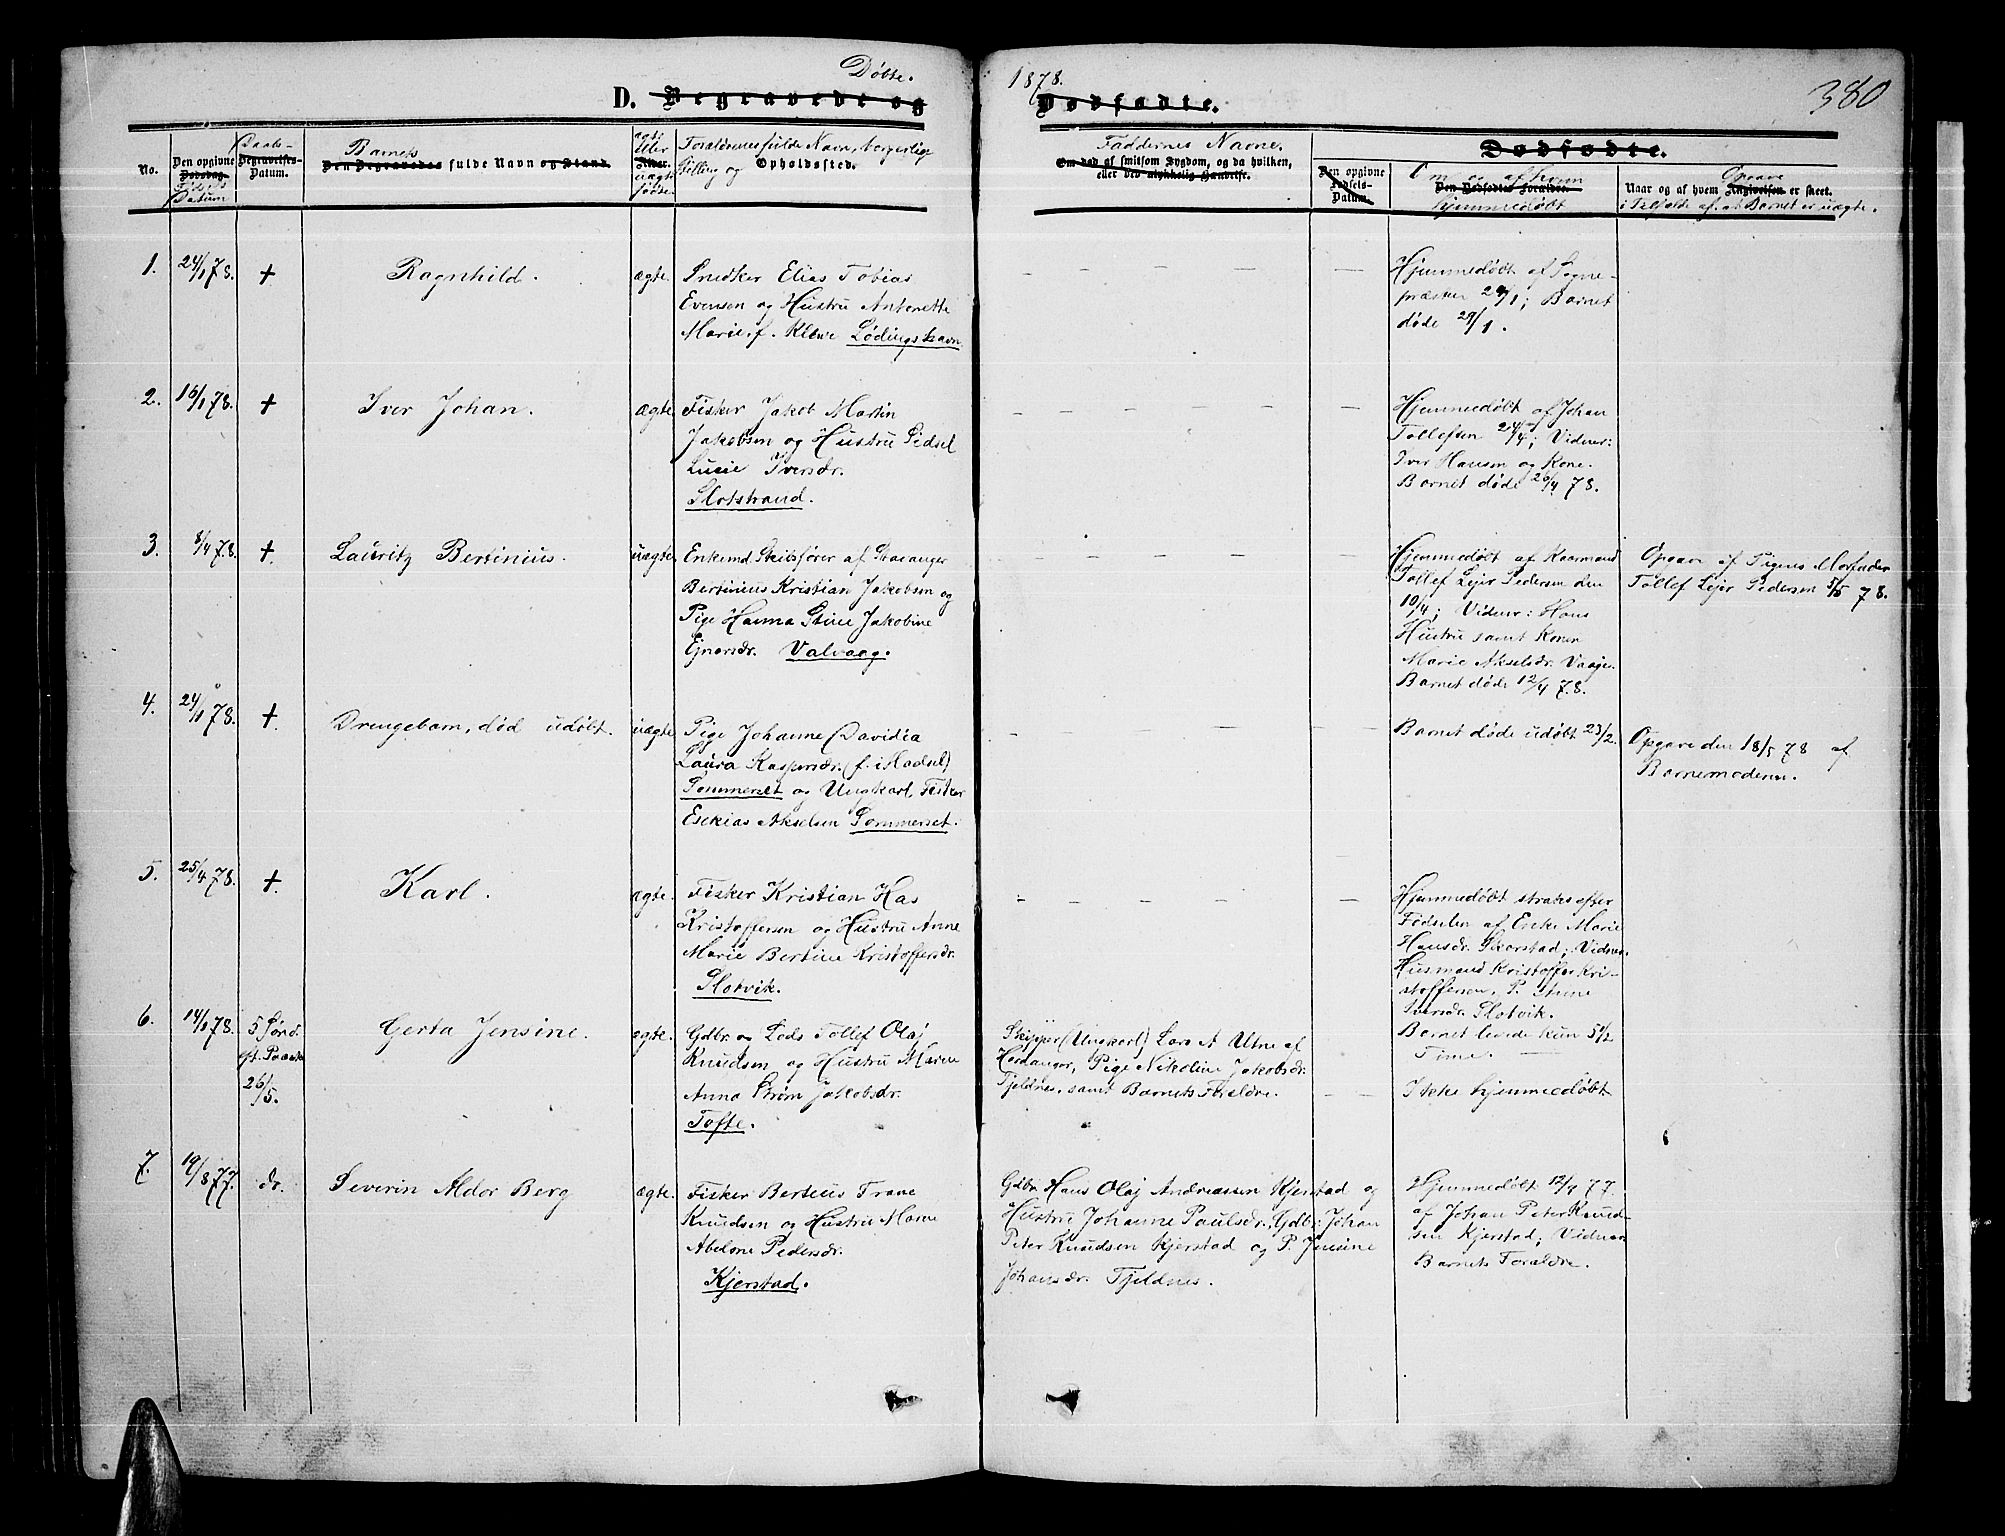 Døbte. 1878.
380
D. Begravede og Dødfødte.
No.
Den opgivne Dødsdag Fødsels Datum
Daabs- Begravelses-Datum.
Barnets
Den Begravedes fulde Navn og Stand.
Forældrenes fulde Navn, borgerlige
Stilling og Opholdssted.
Faddernes Navne.
Om død af smitsom Sygdom, og da hvilken,
eller ved ulykkelig Hændelse.
Dødfødte.
Den opgivne
Fødsels-
Datum.
Om og af hvem
Den Dødfødtes Forældre.
hjemmedøbt
Opgave
Naar og af hvem Angivelsen er skeet.
i Tilfælde af at Barnet er uægte.
1. 24/1 78. + Ragnhild. ægte.
Snedker Elias Tobias
Evensen og Hustru Antonette
Marie f. Klewe Lødingshavn.
Hjemmedøbt af Sogne-
præsten 29/1; Barnet
døde 29/1.
2. 16/1 78. + Iver Johan. ægte.
Fisker Jakob Martin
Jakobsen og Hustru Sidsel
Lucie Iversdr.
Slotstrand.
Hjemmedøbt af Johan
Tollefsen 24/4; Vidner:
Iver Hansen og Kone.
Barnet døde 26/4 78.
3. 8/4 78. + Lauritz Bertinius. uægte
Enkemd. Skibsfører af Stavanger
Bertinius Kristian Jakobsen og
Pige Hanna Stine Jakobine
Ejnarsdr. Valvaag.
Hjemmedøbt af Kaarmand
Tollef Lejer Pedersen den
10/4; Vidner: Hans
Hustru samt Konen
Marie Akselsdr. Vaagen
Barnet døde 12/4 78.
Opgave af Pigens Morfader
Tollef Lejer Pedersen 5/5 78.
4. 24/1 78. + Drengebarn, død udøbt. uægte
Pige Johanne Davidia
Laura Kaspersdr. (f. i Hadsel)
Sommerset og Ungkarl Fisker
Esekias Akselsen Sommerset.
Barnet døde udøbt 23/2.
Opgave den 18/5 78 af
Barnemoderen.
5. 25/4 78. +. Karl. ægte.
Fisker Kristian Kas
Kristoffersen og Hustru Anne
Marie Bertine Kristoffersdr.
Slotvik.
Hjemmedøbt straks efter
Fødselen af Ereke Marie
Hansdr. Skarstad; Vidner
Husmand Kristoffer Kri-
stoffersen, P. Stine
Iversdr. Slotvik.
Barnet levede kun 5 1/2
Time.
6. 14/1 78. 5 Sønd.
eft. Paaske
26/5.
Gerta Jensine. ægte.
Gdbr. og Lods Tollef Olaj
Knudsen og Hustru Maren
Anna Strøm Jakobsdr.
Tofte.
Skipper (Ungkarl) Lars A Utne af
Hardanger, Pige Nikoline Jakobsdr.
Tjeldnes, samt Barnets Forældre.
Ikke hjemmedøbt
7. 19/8 77. do. Severin Aldor Berg ægte.
Fisker Berteus Trane
Knudsen og Hustru Maren
Abelone Pedersdr.
Kjerstad.
Gdbr. Hans Olaj Andreassen Kjerstad og
Hustru Johanne Paulsdr., Gdbr. Johan
Peter Knudsen Kjerstad og P. Jensine
Johansdr. Tjeldnes.
Hjemmedøbt 12/9 77.
af Johan Peter Knud-
sen Kjerstad; Vidner
Barnets Forældre.